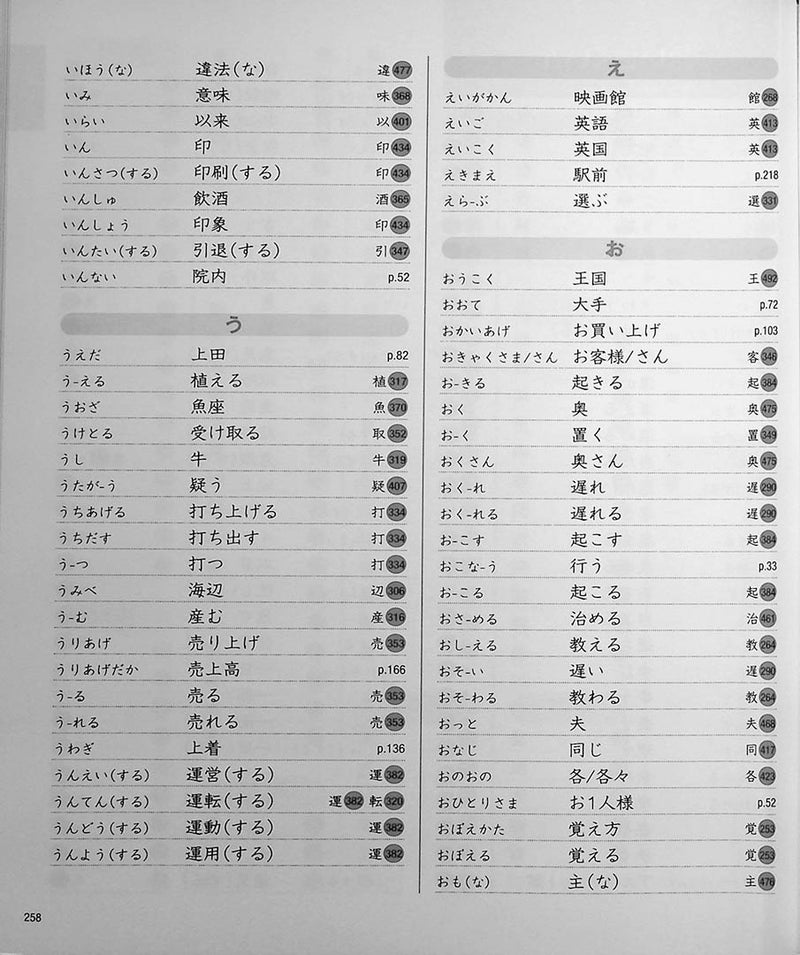 いほう(な) 違法(な) 違477
いみ 意味 味368
いらい 以来 以401
いん 印 印434
いんさつ(する) 印刷(する) 印434
いんしゅ 飲酒 酒365
いんしょう 印象 印434
いんたい(する) 引退(する) 引347
いんない 院内 p.52
う
うえだ 上田 p.82
う-える 植える 植317
うおざ 魚座 魚370
うけとる 受け取る 取352
うし 牛 牛319
うたが-う 疑う 疑407
うちあげる 打ち上げる 打334
うちだす 打ち出す 打334
う-つ 打つ 打334
うみべ 海辺 辺306
う-む 産む 産316
うりあげ 売り上げ 売353
うりあげだか 売上高 p.166
う-る 売る 売353
う-れる 売れる 売353
うわぎ 上着 p.136
うんえい(する) 運営(する) 運382
うんてん(する) 運転(する) 運382 転320
うんどう(する) 運動(する) 運382
うんよう(する) 運用(する) 運382
え
えいがかん 映画館 館268
えいご 英語 英413
えいこく 英国 英413
えきまえ 駅前 p.218
えら-ぶ 選ぶ 選331
お
おうこく 王国 王492
おおて 大手 p.72
おかいあげ お買い上げ p.103
おきゃくさま/さん お客様/さん 客346
お-きる 起きる 起384
おく 奥 奥475
お-く 置く 置349
おくさん 奥さん 奥475
おく-れ 遅れ 遅290
おく-れる 遅れる 遅290
お-こす 起こす 起384
おこな-う 行う p.33
お-こる 起こる 起384
おさ-める 治める 治461
おし-える 教える 教264
おそ-い 遅い 遅290
おそ-わる 教わる 教264
おっと 夫 夫468
おなじ 同じ 同417
おのおの 各/各々 各423
おひとりさま お1人様 p.52
おぼえかた 覚え方 覚253
おぼえる 覚える 覚253
おも(な) 主(な) 主476
258